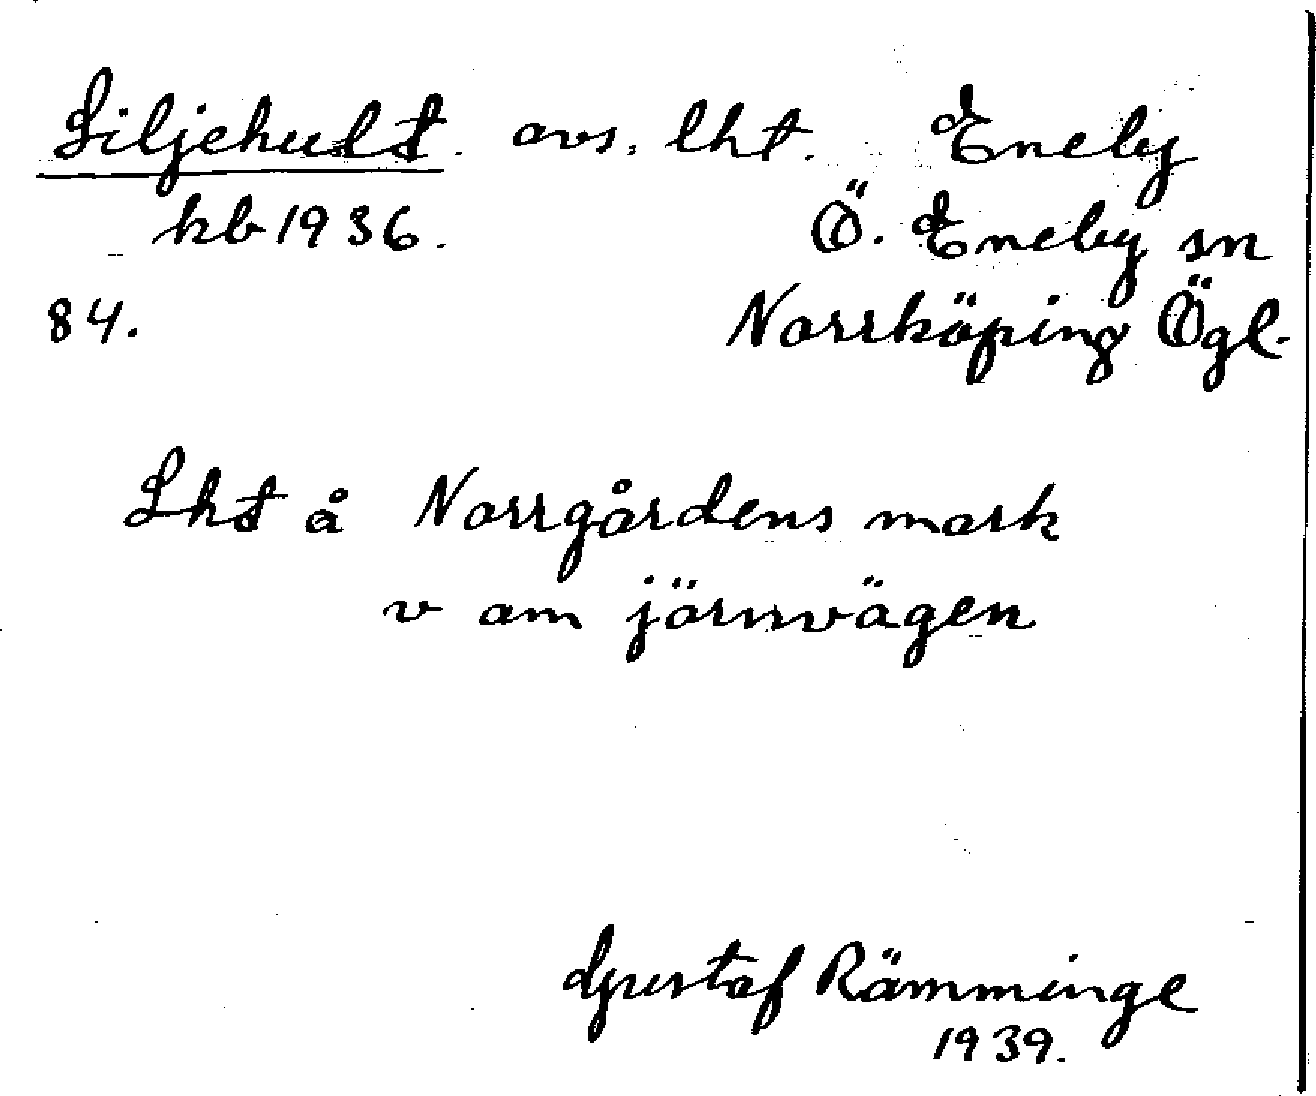 Liljehult. avs. lht. Eneby
kb 1936. Ö. Eneby sn
84. Norrköping Ögl.
Lht å Norrgårdens mark
v om järnvägen
Gustaf Rämminge
1939.